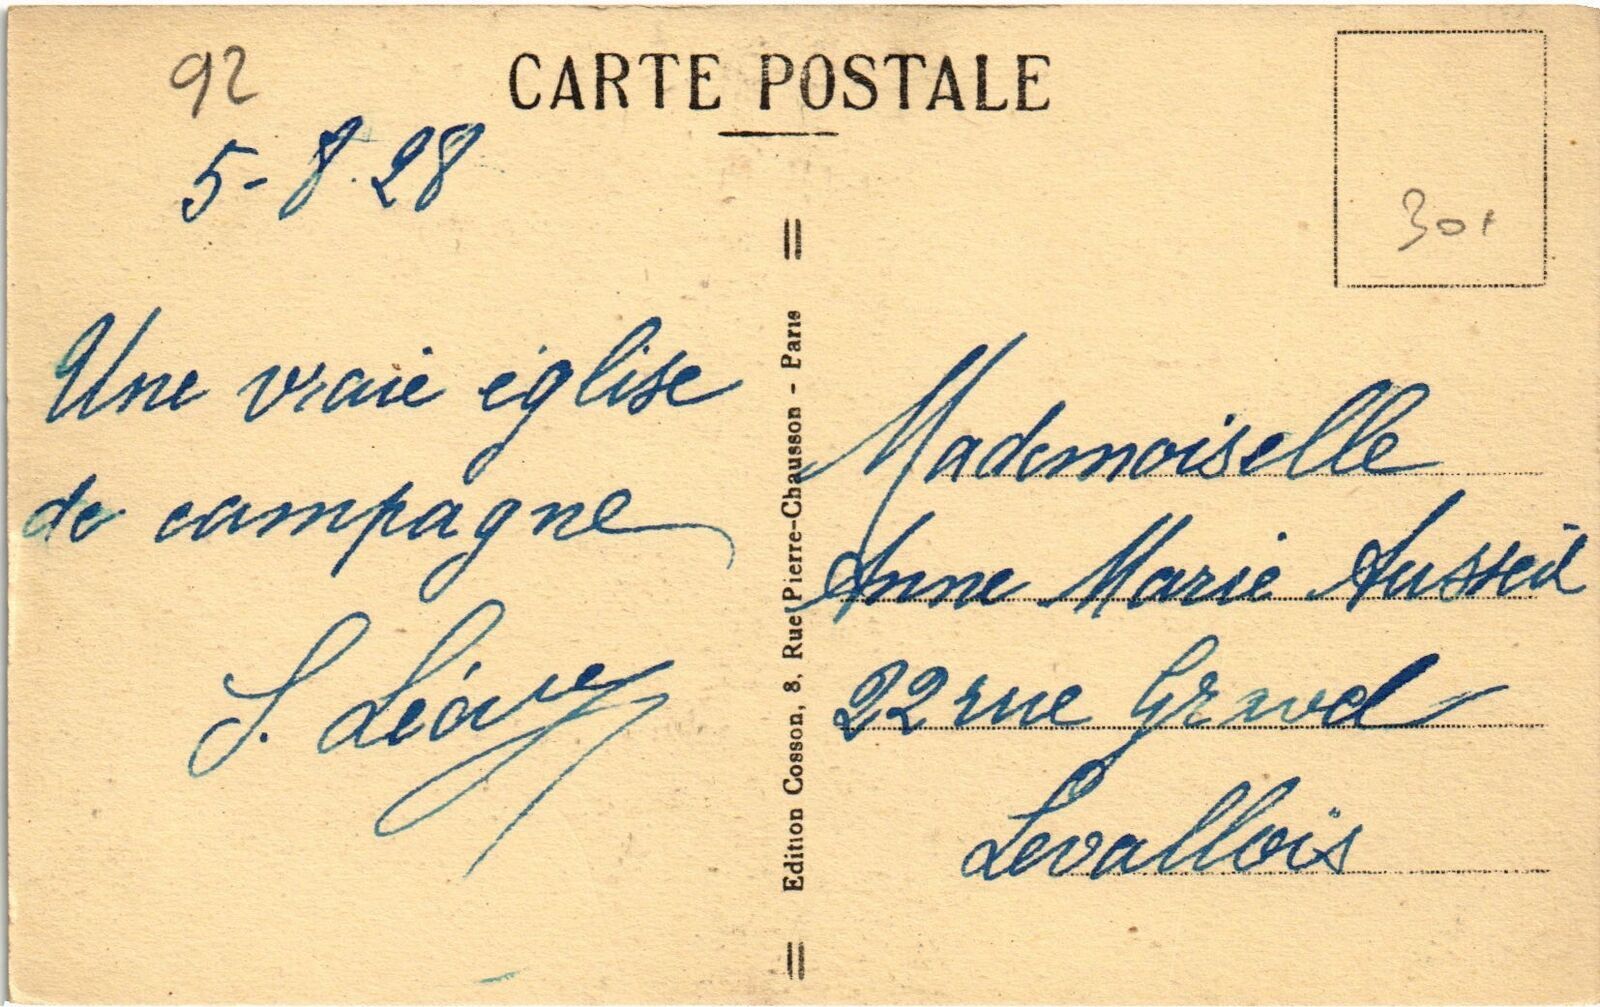 92
CARTE POSTALE
5-8.28
Une vraie église
de campagne
Edition Cosson, 8, Rue Pierre-Chausson - Paris
Mademoiselle
Anne Marie Ausseil
22 rue Gravel
Levallois